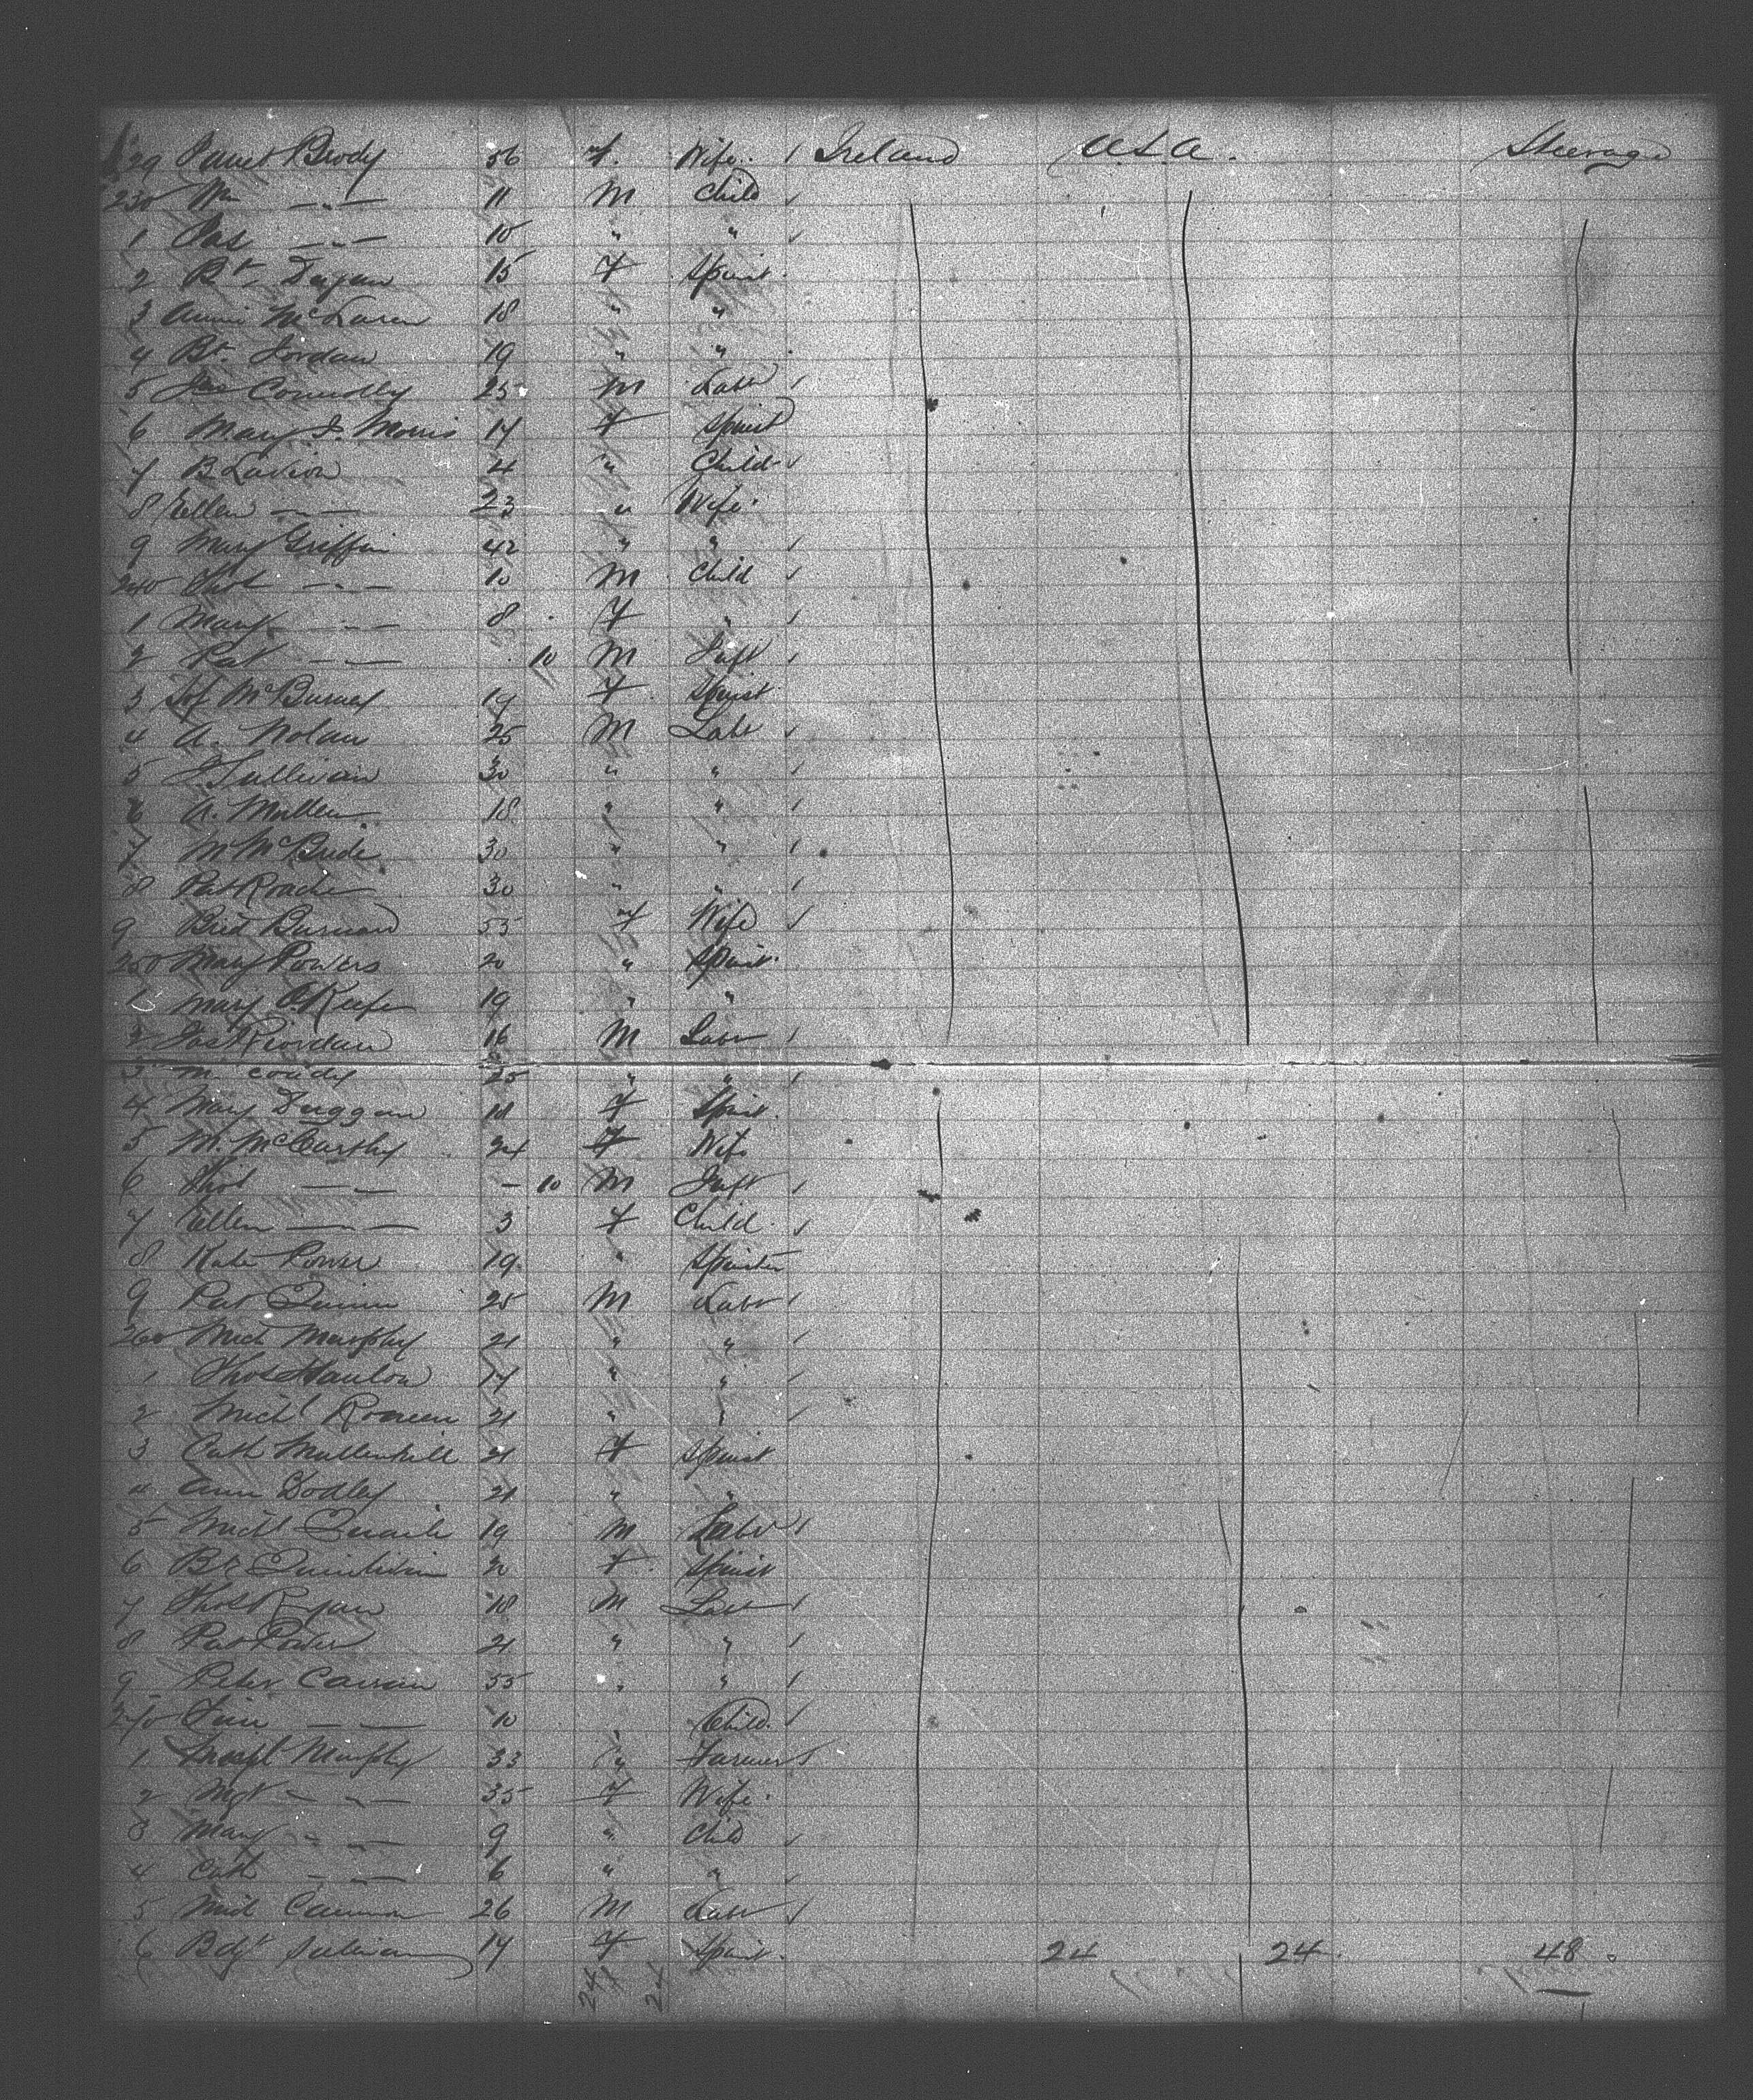 29 Janet Brody 56 f. Wife. Ireland U.S.A. Steerage
230 Wm —"— 11 M Child
1 Jas —"— 10 " "
2 Bt. Dugan 15 F Spinst.
3 Annie McLaren 18 " "
4 Bt. Jordan 19 " "
5 Connolly 25 M Labr
6 Mary J. Morris 17 F Spinst
7 B 4 " Child
8 Ellen —"— 23 " Wife.
9 Mary Griffin 42 " "
240 —"— 10 M Child
1 Mary —"— 8 F "
2 Pat —"— 10 M Inft
3 McBurney 17 F Spinst
4 A. Nolan 25 M Labr
5 J Sullivan 30 " "
6 A. Mullen 18 " "
7 M McBride 30 " "
8 Pat Roache 30 " "
9 Brid 55 f Wife
250 Mary Powers 20 " Spinst.
1 Mary O'Keefe 19 " "
2 Jas Riordan 16 M Labr
3 M. Coudy 25 " "
4 Mary Duggan 18 F Spinst.
5 M. McCarthy 24 F Wife
6 Thos —"— – 10 M Inft
7 Ellen —"— 3 F Child.
8 Kate Power 19 " Spinster
9 Pat Quinn 25 M Labr
260 Mich Murphy 21 " "
1 Thos Hanlon 17 " "
2 Michl 21 " "
3 Cath Mullenhill 21 F Spinst
4 Ann Dodley 21 " "
5 Michl 19 M Labr
6 Bt Quinlivin 20 F Spinst
7 Thos Ryan 18 M Labr
8 Pat Power 21 " "
9 Peter 55 " "
270 —"— 10 " Child.
1 Murphy 33 " Farmer
2 Mgt —"— 35 F Wife.
3 Mary —"— 9 " Child
4 Cath —"— 6 " "
5 Mich Cannon 26 M Labr
6 Bdgt Sullivan 17 F Spinst. 24 24 48
24 24